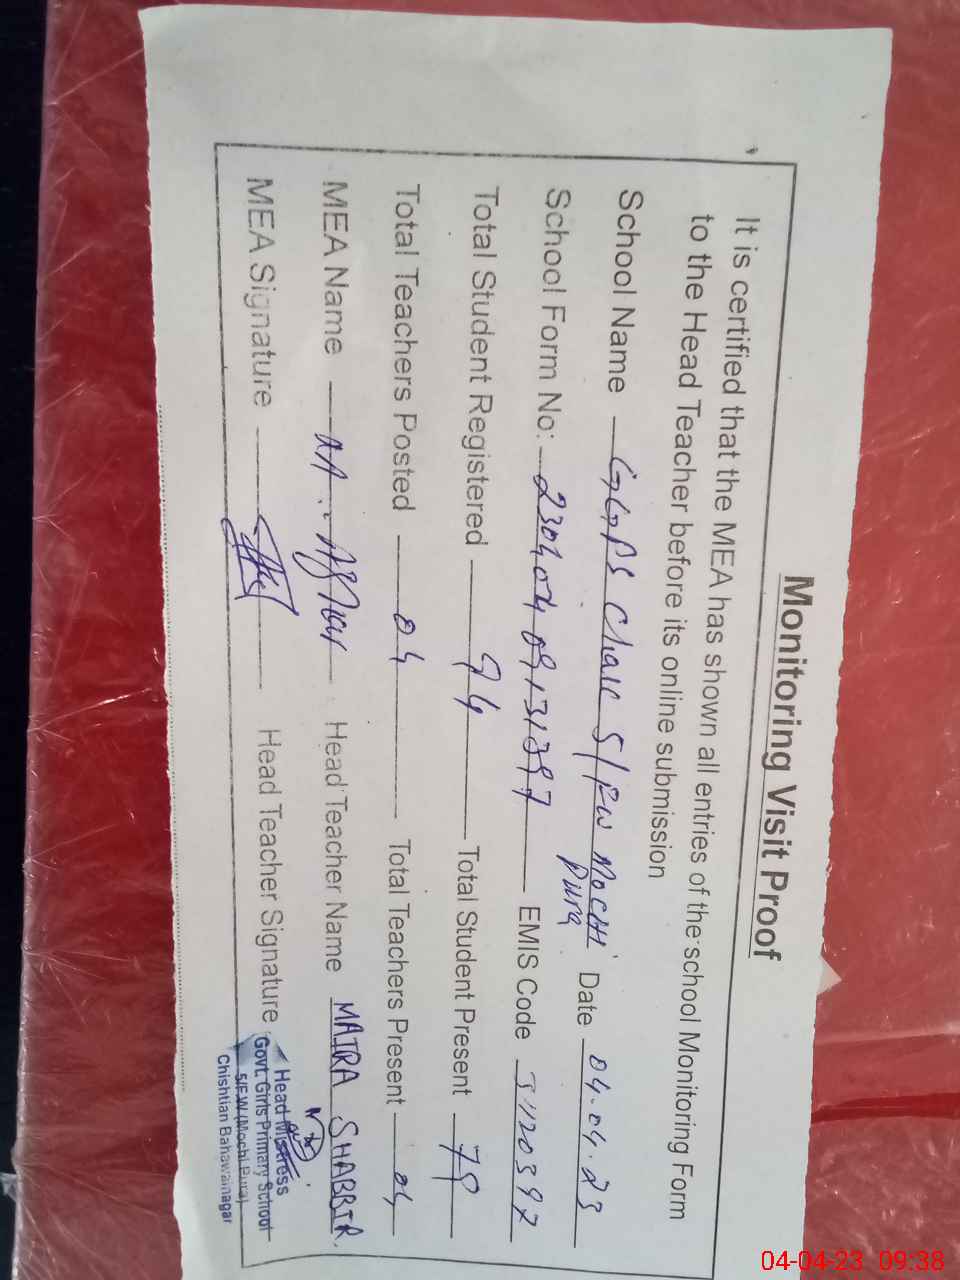 Monitoring Visit Proof
It is certified that the MEA has shown all entries of the school Monitoring Form
to the Head Teacher before its online submission
School Name GGPS Chak 5/FW MOCHI Pura Date 04.04.23
School Form No: EMIS Code 31120397
Total Student Registered 94 Total Student Present 79
Total Teachers Posted 04 Total Teachers Present 04
MEA Name Head Teacher Name MAIRA SHABBIR.
MEA Signature Head Teacher Signature
Head Mistress
Govt. Girls Primary School
5/F.W (Mochi Pura)
Chishtian Bahawalnagar
04-04-23 09:38